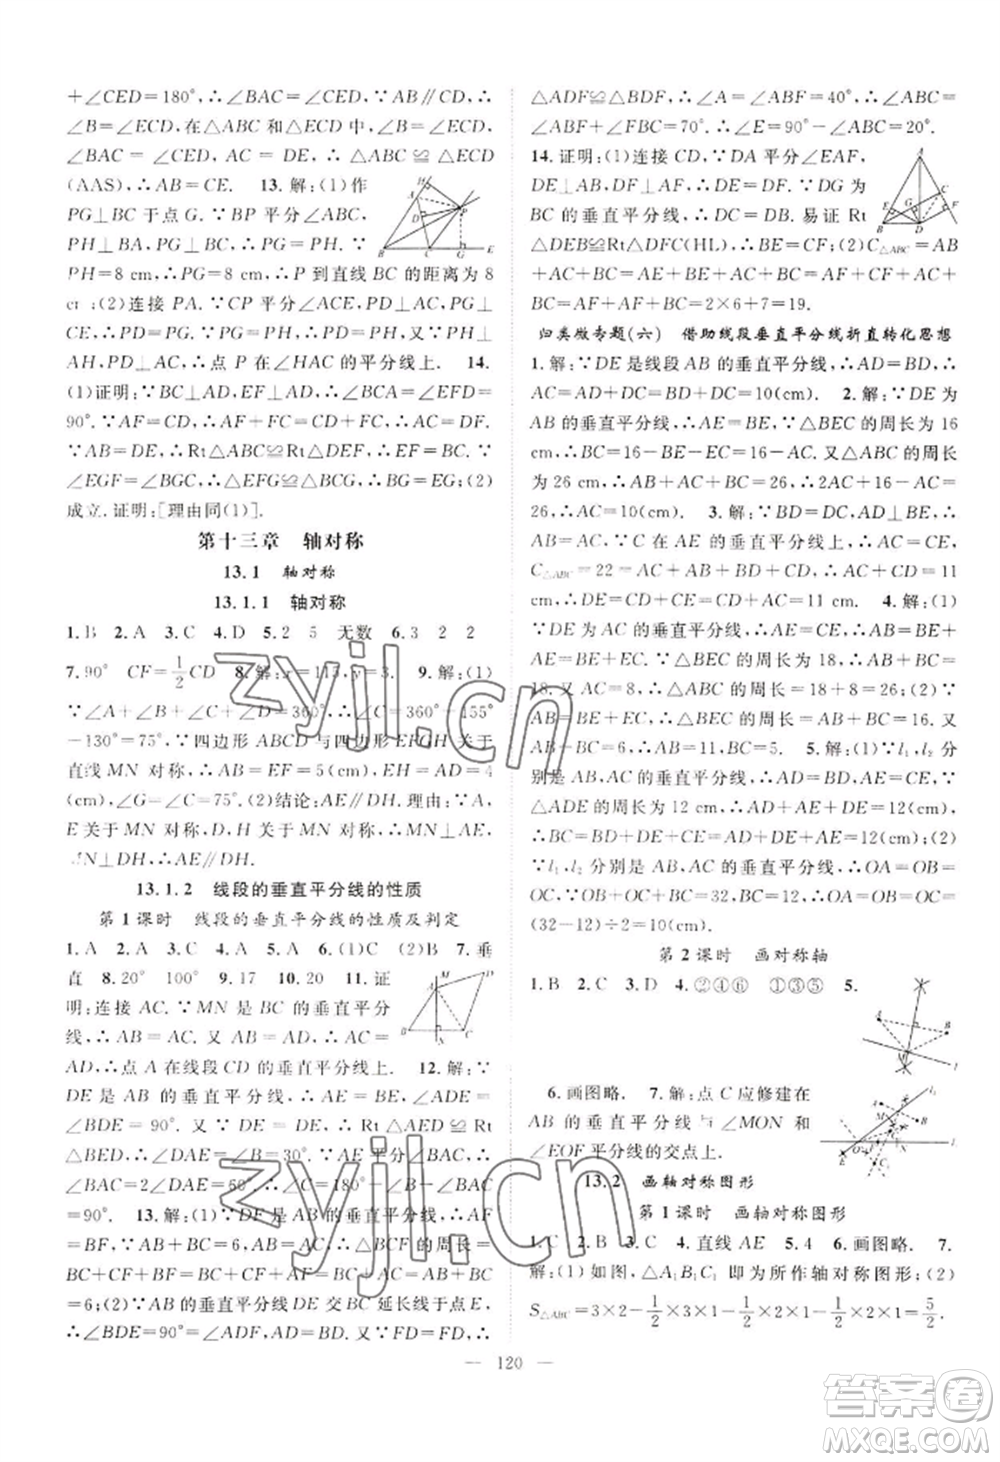 +∠CED=180°,∴∠BAC=∠CED.∵AB∥CD,∴
∠B=∠ECD,在△ABC和△ECD中,∠B=∠ECD,
∠BAC=∠CED,AC=DE,∴△ABC≌△CED
(AAS),∴AB=CE. 13.解:(1)作
PG⊥BC于点G.∵BP平分∠ABC,
PH⊥BA,PG⊥BC,∴PH=PG.∵
PH=8 cm,∴PG=8.∴P到直线BC的距离为8
;(2)连接PA.∵CP平分∠ACE,PD⊥AC,PG⊥
BC,∴PD=PG.∵PG=PH,∴PD=PH.又∵
PD⊥AC,PH⊥BA,∴点P在∠HAC的平分线上. 14.
(1)证明:∵BC⊥AD,EF⊥AD,∴∠BCA=∠EFD=
90°.∵AF=CD,∴AF+FC=CD+FC.∴AC=DF.
∵AB=DE,∴Rt△ABC≌Rt△DEF.∴BC=EF.∵
∠EGF=∠BGC,∴△EFG≌△BCG.∴EG=BG;(2)
成立.证明:[理由同(1)].
第十三章 轴对称
13.1 轴对称
13.1.1 轴对称
1.B 2.A 3.C 4.D 5.2 5 无数 6.3 2 2
7.90° CF=1/2CD 8.解:x=115,y=3. 9.解:(1)
∵∠A+∠B+∠C+∠D=360°,∴∠C=360°-155°
-130°=75°,∵四边形ABCD与四边形EFGH关于
直线MN对称,∴AB=EF=5(cm),EH=AD=4
(cm),∠G=∠C=75°.(2)结论:AE∥DH.理由:∵A、
E关于MN对称,D、H关于MN对称,∴MN⊥AE,
MN⊥DH,∴AE∥DH.
13.1.2 线段的垂直平分线的性质
第1课时 线段的垂直平分线的性质及判定
1.A 2.A 3.C 4.A 5.A 6.(1)C (2)B 7.垂
直 8.20° 100° 9.17 10.20° 11.证
明:连接AC.∵MN是BC的垂直平分
线,∴AB=AC.∵AB=AD,∴AC=
AD,∴点A在线段CD的垂直平分线上. 12.解:∵
DE是AB的垂直平分线,∴AE=BE,∠ADE=
∠BDE=90°.又∵DE=DE,∴Rt△AED≌Rt
△BED,∴∠BAE=∠B=30°.∵AE平分∠BAC,∴
∠BAC=2∠BAE=60°,∴∠C=180°-∠B-∠BAC
=90°. 13.解:(1)∵DF是AB的垂直平分线,∴AF=
BF,∵AB=AC,AB=6,∴AC=6,∴△BCF的周长=
BC+CF+BF=BC+CF+AF=BC+AC,∴BC
=6;(2)∵AB的垂直平分线DE交BC延长线于点E,
∴∠BDE=90°=∠ADF,∠A=40°.又∵FD=FD,∴
△ADF≌△BDF,∴∠A=∠ABF=40°,∴∠ABC=
∠ABF+∠FBC=70°.∴∠E=90°-∠ABC=20°.
14.证明:(1)连接CD,∵DA平分∠EAF,
DE⊥AB,DF⊥AC,∴DE=DF.∵DG为
BC的垂直平分线,∴DC=DB.易证Rt
△DEB≌Rt△DFC(HL),∴BE=CF;(2)C△ABC=AB+
AC+BC=AE+BE+AF-CF+BC=AE+AF+
BC=AF+AF+BC=2×6+7=19.
归类微专题(六) 借助线段垂直平分线折直转化思想
1.解:∵DE是线段AB的垂直平分线,∴AD=BD.∴
BC=BD+DC=AD+DC=10(cm). 2.解:∵DE为
AB的垂直平分线,∴AE=BE.∵△BEC的周长为16
cm,∴BC=16-BE-EC=16-AE-EC=16-AC,
∴BC+AC=16 cm.又∵△ABC的周长为26 cm,∴AB=
26-16=10(cm). 3.解:∵BD=DC,AE=EC,∴
DE是△ABC中AC边的垂直平分线,∴AD=CD.∵
C△ABC=22=AB+BC+AC,∴AB+BD+AD=11
cm,∴DE=CD+CE=11(cm). 4.解:(1)
∵DE为AB的垂直平分线,∴AE=BE,∴BE+EC=
AE+EC=AC.∵△BEC的周长为18,∴AC+BC=
18.又∵AC-BC=8,∴AC=13,BC=5;(2)∵
△ABC的周长=AB+AC+BC=18+8=26;(2)∵
AE=BE,∴△BEC的周长=AC+BC=AB+BC=
8+6=14,∴△BEC的周长为14. 5.解:(1)∵l₁,l₂分
别是AB,AC的垂直平分线,∴AD=BD,AE=CE.∵
△ADE的周长为12 cm,∴AD+AE+DE=12(cm),
∴BC=BD+DE+CE=AD+DE+AE=12(cm);(2)∵
l₁,l₂分别是AB,AC的垂直平分线,∴OA=OB=
OC.∵OB+OC+BC=32,∴OA=OB=OC=
(32-12)÷2=10(cm).
第2课时 画对称轴
1.B 2.C 3.D 4.②④⑥ ①③⑤ 5.
6.画图略. 7.解:点C应修建在
AB的垂直平分线与∠MON和
∠EOF平分线的交点上.
13.2 画轴对称图形
第1课时 画轴对称图形
1.C 2.B 3.C 4.直线AE 5.4 6.画图略. 7.
解:(1)如图,△A₁B₁C₁即为所作轴对称图形;(2)
S△ABC=3×2-1/2×3×1-1/2×2×1-1/2×2×1=5/2.
— 120 —
zyjl.cn
zyjl.cn
答案圈
MXQE.COM